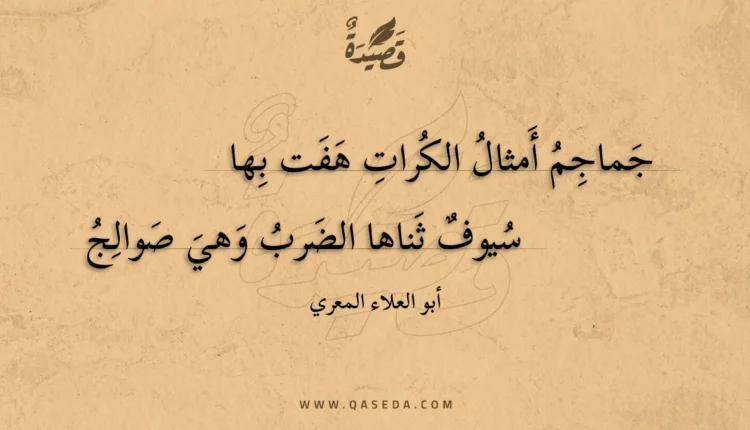 قَصِيدَةٌ
جَماجِمُ أَمثالُ الكُراتِ هَفَت بِها
سُيوفٌ ثَناها الضَربُ وَهيَ صَوالِجُ
أبو العلاء المعري
WWW.QASEDA.COM